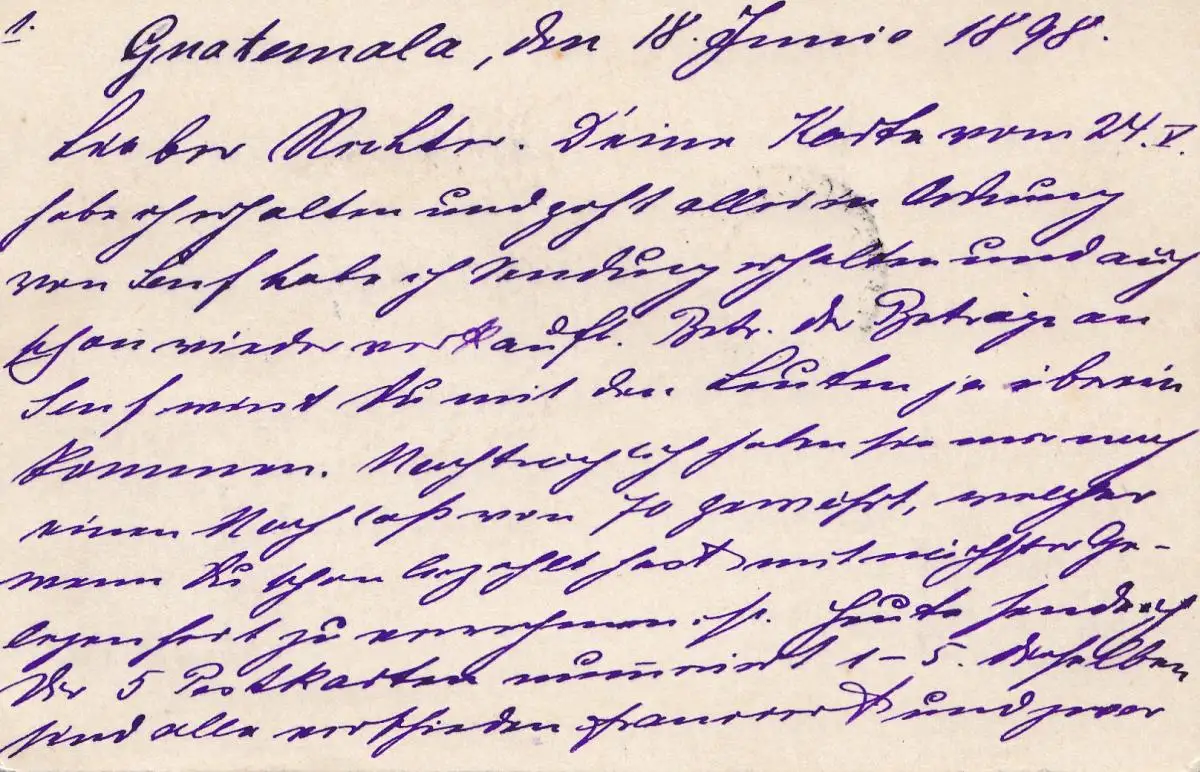 1.
Guatemala, den 18. Junio 1898.
Lieber Richter. Deine Karte vom 24.V.
habe ich erhalten und geht alles in Ordnung
von Senf habe ich Sendung erhalten und auch
schon wieder verkauft. Betr. der Beträge an
Senf wirst Du mit den Leuten ja überein
kommen. Nachträglich haben sie mir noch
einen Nachlaß von 70 gewährt, welcher
wenn Du schon bezahlt hast mit nächster Ge-
legenheit zu verrechnen ist. Heute sende ich
Dir 5 Postkarten numerirt 1-5. dieselben
sind alle verschieden frankirt und zwar